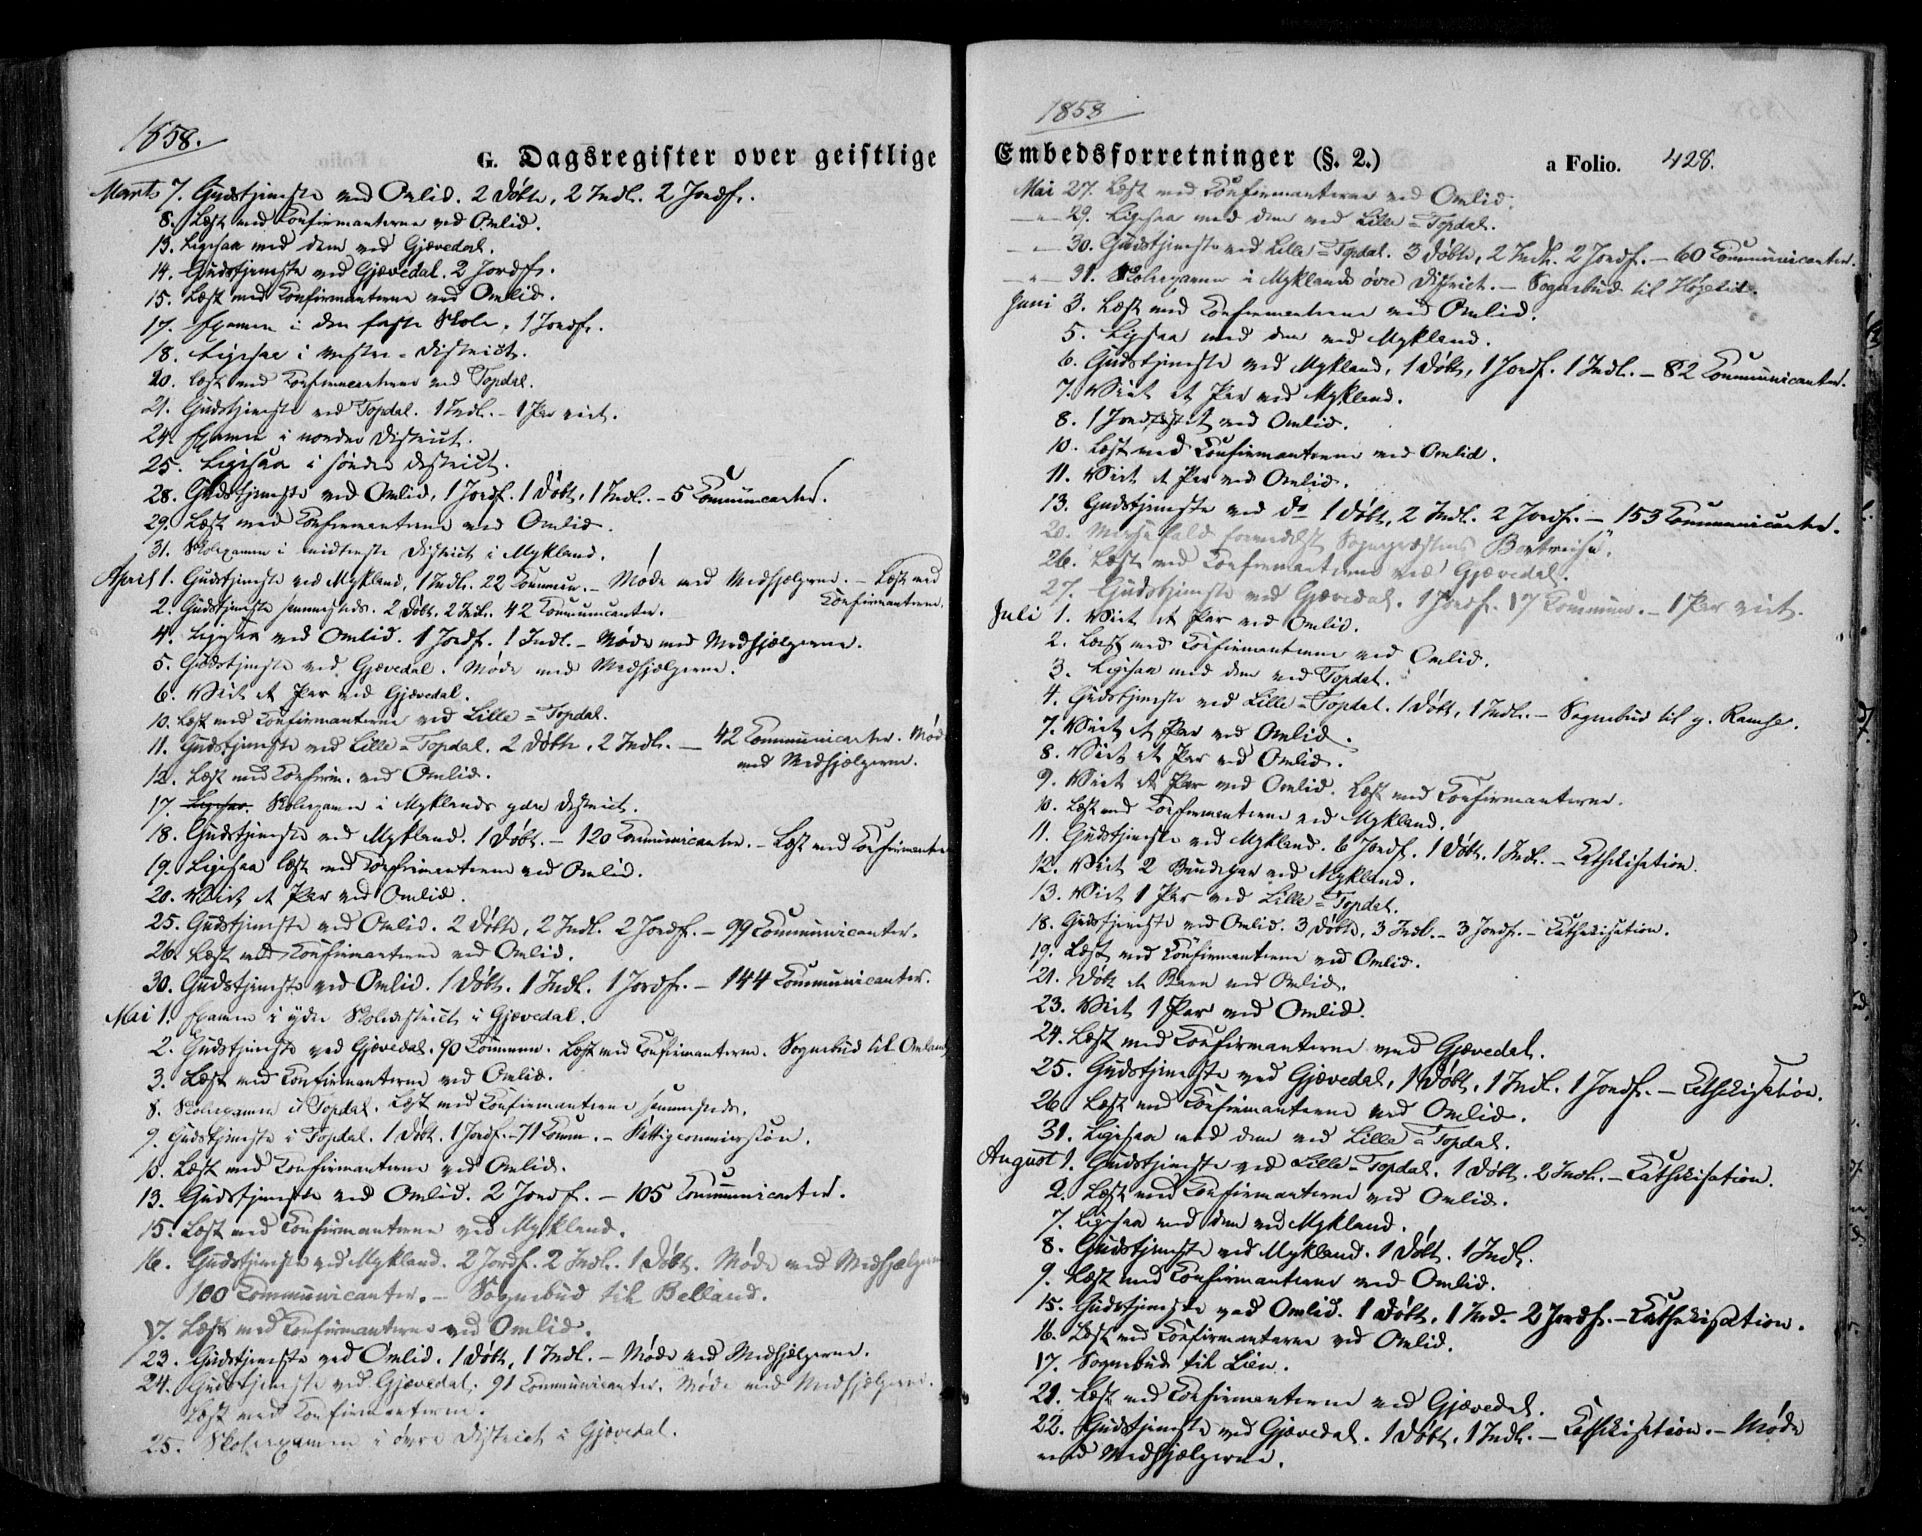 1858.
G. Dagsregister over geistlige
Marts 7. Gudstjeneste ved Omlid. 2 Døbte, 2 Indl. 2 Jordf.
8. Læst med Confirmanterne ved Omlid.
13. Ligesaa med dem ved Gjævedal.
14. Gudstjeneste ved Gjævedal. 2 Jordf.
15. Læst med Confirmanterne ved Omlid.
17. Examen i den faste Skole, 1 Jordf.
18. Ligesaa i vestre District.
20. Læst med Confirmanterne ved Topdal.
21. Gudstjeneste ved Topdal. 1 Indl. - 1 Par viet.
24. Examen i nordre District.
25. Ligesaa i søndre District.
28. Gudstjeneste ved Omlid, 1 Jordf. 1 Døbt, 1 Indl. - 5 Communicanter.
29. Læst med Confirmanterne ved Omlid.
31. Skoleexamen i midterste District i Mykland.
April 1. Gudstjeneste ved Mykland, 1 Indl. 22 Commun. - Møde med Medhjælperne. - Læst med Confirmanterne.
2. Gudstjeneste sammesteds. 2 Døbt, 2 Indl. 42 Communicanter.
4. Ligesaa ved Omlid. 1 Jordf. 1 Indl. - Møde med Medhjælperne.
5. Gudstjeneste ved Gjævedal. Møde med Medhjælperne.
6. Viet et Par ved Gjævedal.
10. Læst med Confirmanterne ved Lille-Topdal.
11. Gudstjeneste ved Lille-Topdal. 2 Døbte, 2 Indl. - 42 Communicanter. Møde med Medhjælperne.
12. Læst med Confirm. ved Omlid.
17. Ligesaa. Skoleexamen i Myklands ydre District.
18. Gudstjeneste ved Mykland. 1 Døbt. - 120 Communicanter. - Læst med Confirmanter
19. Ligesaa læst med Confirmanterne ved Omlid.
20. Viet et Par ved Omlid.
25. Gudstjeneste ved Omlid. 2 Døbte, 2 Indl. 2 Jordf. - 99 Communicanter.
26. Læst med Confirmanterne ved Omlid.
30. Gudstjeneste ved Omlid. 1 Døbt. 1 Indl. 1 Jordf. - 144 Communicanter.
Mai 1. Examen i ydre Skoledistrict i Gjævedal.
2. Gudstjeneste ved Gjævedal. 90 Commun. Læst med Confirmanterne. Sognebud til
3. Læst med Confirmanterne ved Omlid.
8. Skoleexamen i Topdal. Læst med Confirmanterne sammesteds.
9. Gudstjeneste i Topdal. 1 Døbt. 1 Jordf. - 71 Comm. - Fattigcommission.
10. Læst med Confirmanterne ved Omlid.
13. Gudstjeneste ved Omlid. 2 Jordf. - 105 Communicanter.
15. Læst med Confirmanterne ved Mykland.
16. Gudstjeneste ved Mykland. 2 Jordf. 2 Indl. 1 Døbt. Møde med Medhjælperne
100 Communicanter. - Sognebud til Belland.
17. Læst med Confirmanterne ved Omlid.
23. Gudstjeneste ved Omlid. 1 Døbt, 1 Indl. - Møde med Medhjælperne.
24. Gudstjeneste ved Gjævedal, 91 Communicanter. Møde med Medhjælperne.
Læst med Confirmanterne.
25. Skoleexamen i øvre District i Gjævedal.
1858
Embedsforretninger (§. 2.) a Folio. 428.
Mai 27. Læst med Confirmanterne ved Omlid.
-"- 29. Ligesaa med dem ved Lille-Topdal.
-"- 30. Gudstjeneste ved Lille-Topdal. 3 Døbte, 2 Indl. 2 Jordf. - 60 Communicanter.
-"- 31. Skoleexamen i Myklands øvre District. - Sognebud til
Juni 3. Læst med Confirmanterne ved Omlid.
5. Ligesaa med dem ved Mykland.
6. Gudstjeneste ved Mykland, 1 Døbt, 1 Jordf. 1 Indl. - 82 Communicanter.
7. Viet et Par ved Mykland.
8. 1 Jordfæstet ved Omlid.
10. Læst med Confirmanterne ved Omlid.
11. Viet et Par ved Omlid.
13. Gudstjeneste ved do 1 Døbt, 2 Indl. 2 Jordf. - 153 Communicanter.
20. Messefald formedelst Sognepræstens Bortreise.
26. Læst med Confirmanterne ved Gjævedal.
27. Gudstjeneste ved Gjævedal. 1 Jordf. 17 Commun. - 1 Par viet.
Juli 1. Viet et Par ved Omlid.
2. Læst med Confirmanterne ved Omlid.
3. Ligesaa med dem ved Topdal.
4. Gudstjeneste ved Lille-Topdal. 1 Døbt, 1 Indl. - Sognebud til y. Ramse.
7. Viet et Par ved Omlid.
8. Viet et Par ved Omlid.
9. Viet et Par ved Omlid. Læst med Confirmanterne.
10. Læst med Confirmanterne ved Mykland.
11. Gudstjeneste ved Mykland. 6 Jordf. 1 Døbt. 1 Indl. - Cathekisation.
12. Viet 2 Brudepar ved Mykland.
13. Viet 1 Par ved Lille-Topdal.
18. Gudstjeneste ved Omlid. 3 Døbte, 3 Indl. - 3 Jordf. - Cathekisation.
19. Læst med Confirmanterne ved Omlid.
21. Døbt et Barn ved Omlid.
23. Viet 1 Par ved Omlid.
24. Læst med Confirmanterne ved Gjævedal.
25. Gudstjeneste ved Gjævedal, 1 Døbt, 1 Indl. 1 Jordf. - Cathekisation.
26. Læst med Confirmanterne ved Omlid.
31. Ligesaa med dem ved Lille-Topdal.
August 1. Gudstjeneste ved Lille-Topdal. 1 Døbt. 2 Indl. - Cathekisation.
2. Læst med Confirmanterne ved Omlid.
7. Ligesaa med dem ved Mykland.
8. Gudstjeneste ved Mykland. 1 Døbt. 1 Indl.
9. Læst med Confirmanterne ved Omlid.
15. Gudstjeneste ved Omlid. 1 Døbt, 1 Ind. 2 Jordf. - Cathekisation.
16. Læst med Confirmanterne ved Omlid.
17. Sognebud til Lien.
21. Læst med Confirmanterne ved Gjævedal.
22. Gudstjeneste ved Gjævedal. 1 Døbt, 1 Indl. - Cathekisation. - Møde
med Medhjælperne.